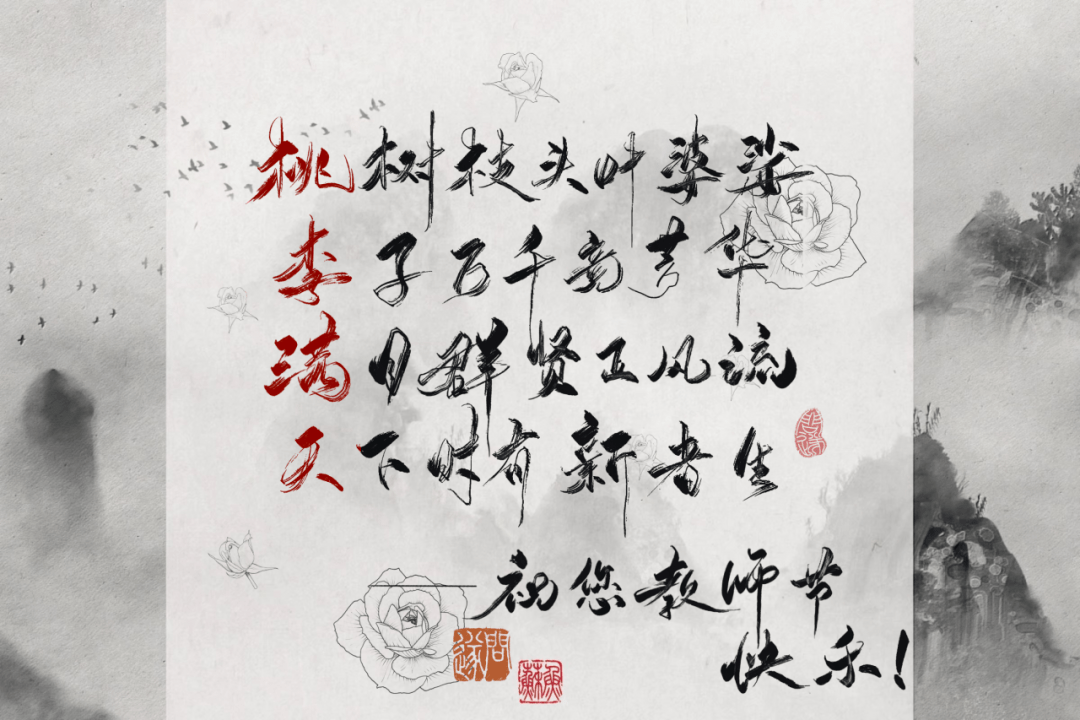 桃树枝头叶婆娑
李子百千竞芳华
满目群贤正风流
天下时有新者生
祝您教师节
快乐！